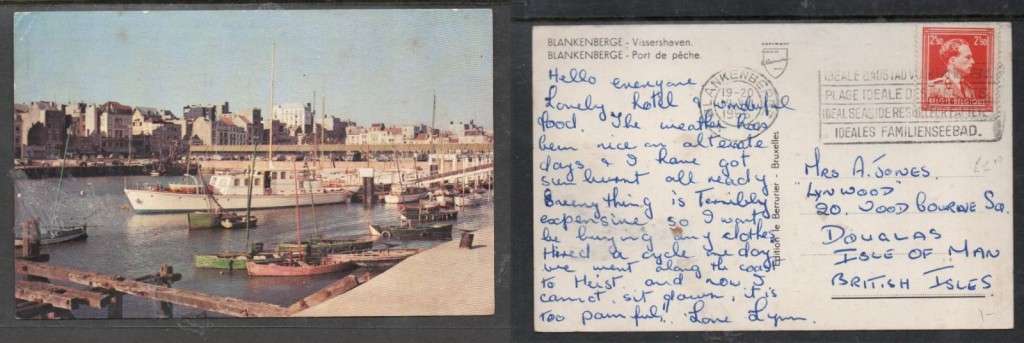 BLANKENBERGE - Vissershaven.
BLANKENBERGE - Port de pêche.
Hello everyone
Lovely hotel & wonderful
food. The weather has
been nice on alternate
days & I have got
sun burnt all ready
Everything is Terribly
expensive so I won't
be buying any clothes
Hired a cycle one day
we went along the coast
to Heist and now I
cannot sit down, it is
too painful. Love Lynn.
Edition le Berrurier - Bruxelles
BLANKENBERGE
19-20
PLAGE IDEALE
IDEALES FAMILIENSEEBAD.
2F50 2F50
BELGIE BELGIQUE
MRS A. JONES.
"LYNWOOD"
20. WOOD BOURNE SQ.
DOUGLAS
ISLE OF MAN
BRITISH ISLES